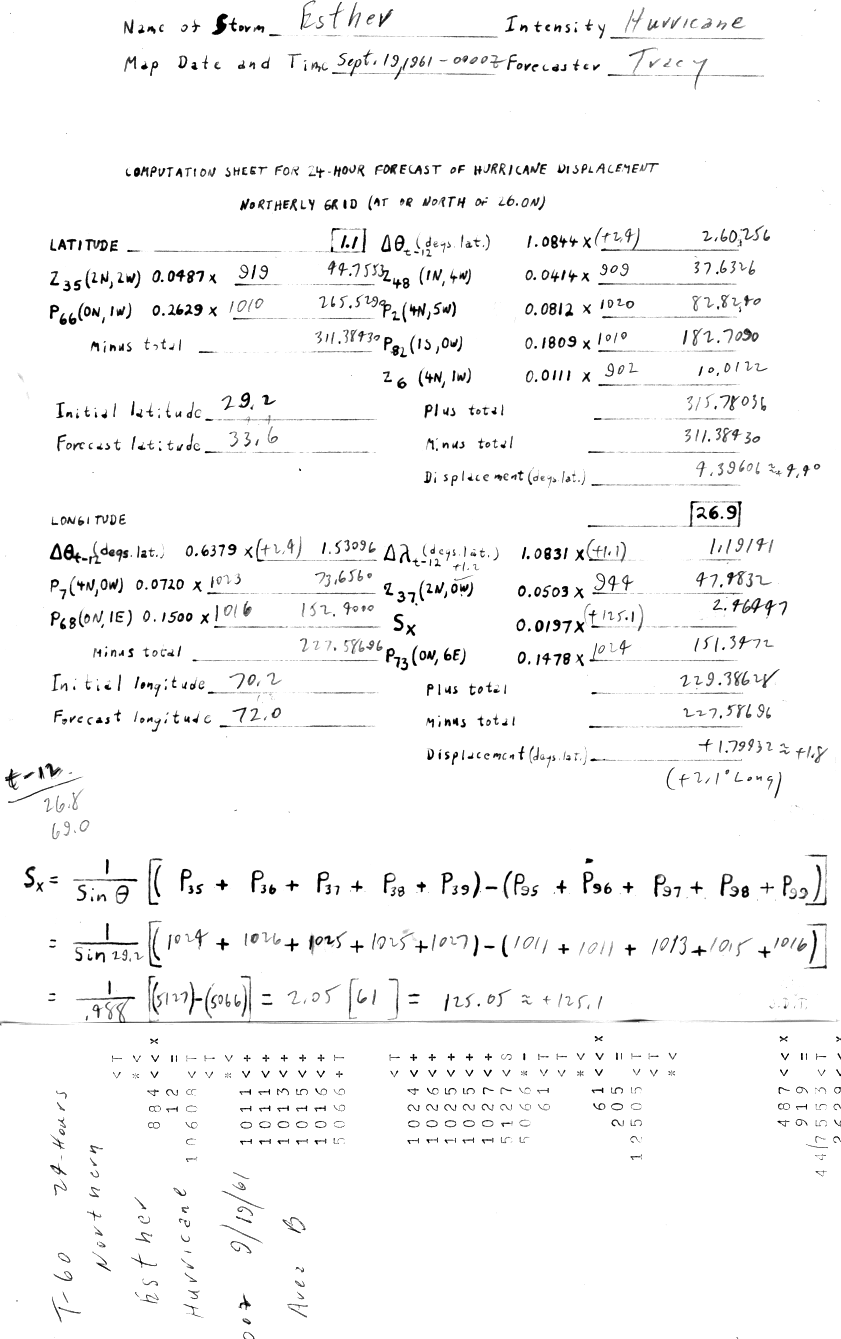 Name of Storm Esther Intensity Hurricane
Map Date and Time Sept. 19, 1961 - 0000Z Forecaster Tracy
COMPUTATION SHEET FOR 24-HOUR FORECAST OF HURRICANE DISPLACEMENT
NORTHERLY GRID (AT OR NORTH OF 26.0N)
LATITUDE 1.1 Δθt-12 (degs. lat.) 1.0844 x (+2.4) 2.60256
Z35 (2N, 2W) 0.0487 x 919 44.7553 Z48 (1N, 4W) 0.0414 x 909 37.6326
P66 (0N, 1W) 0.2629 x 1010 265.5290 P2 (4N, 5W) 0.0812 x 1020 82.8240
Minus total 311.38430 P82 (1S, 0W) 0.1809 x 1010 182.7090
Z6 (4N, 1W) 0.0111 x 902 10.0122
Initial latitude 29.2 Plus total 315.78036
Forecast latitude 33.6 Minus total 311.38430
Displacement (degs. lat.) 4.39606 ≈ 4.4°
LONGITUDE 26.9
Δθt-12 (degs. lat.) 0.6379 x (+2.4) 1.53096 Δλt-12 (degs. lat.) 1.0831 x (+1.1) 1.19141
+1.2
P7 (4N, 0W) 0.0720 x 1023 73.6560 Z37 (2N, 0W) 0.0503 x 944 47.4832
P68 (0N, 1E) 0.1500 x 1016 152.4000 Sx 0.0197 x (+125.1) 2.46447
Minus total 227.58696 P73 (0N, 6E) 0.1478 x 1024 151.3472
Initial longitude 70.2 Plus total 229.38628
Forecast longitude 72.0 Minus total 227.58696
Displacement (degs. lat.) +1.79932 ≈ +1.8
(+2.1° Long)
t-12
26.8
69.0
Sx = 1/Sin θ [(P35 + P36 + P37 + P38 + P39) - (P95 + P96 + P97 + P98 + P99)]
= 1/Sin 29.2 [(1024 + 1026 + 1025 + 1025 + 1027) - (1011 + 1011 + 1013 + 1015 + 1016)]
= 1/.488 [(5127) - (5066)] = 2.05 [61] = 125.05 ≈ +125.1
T-60 24-Hours
Northern
Esther
Hurricane
9/19/61
< T
* <
884 < < x
12 =
10608 < T
* <
1011 < +
1011 < +
1013 < +
1015 < +
1016 < +
5066 + T
< T
1024 < +
1026 < +
1025 < +
1025 < +
1027 < +
5127 < S
5066 * -
61 < T
< T
* <
61 < < x
205 =
12505 < T
< T
* <
487 < < x
919 =
447553 < T